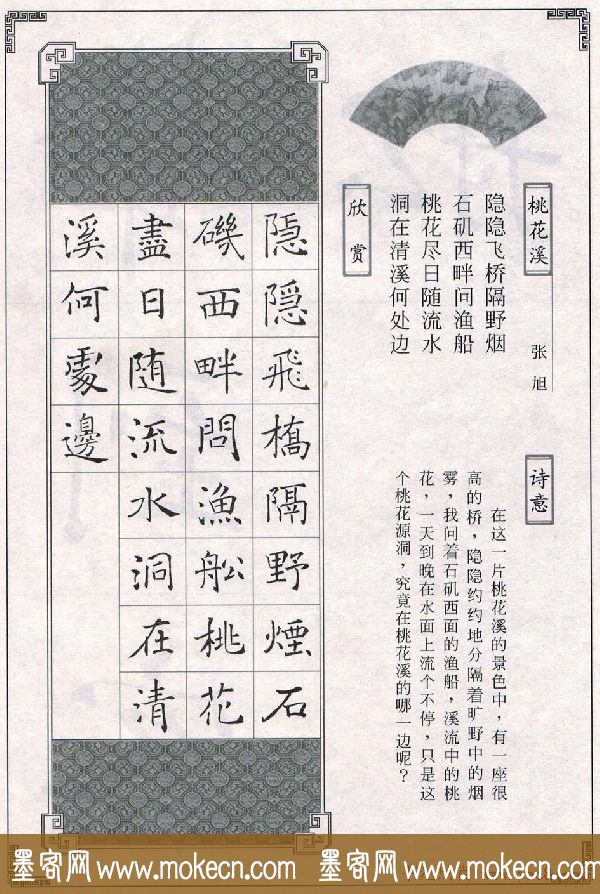 桃花溪
张旭
隐隐飞桥隔野烟
石矶西畔问渔船
桃花尽日随流水
洞在清溪何处边
诗意
在这一片桃花溪的景色中，有一座很
高的桥，隐隐约约地分隔着旷野中的烟
雾，我问着石矶西面的渔船，溪流中的桃
花，一天到晚在水面上流个不停，只是这
个桃花源洞，究竟在桃花溪的哪一边呢？
欣赏
隱隱飛橋隔野煙石
磯西畔問漁船桃花
盡日随流水洞在清
溪何處邊
墨客网 www.mokecn.com 墨客网 www.mokecn.com